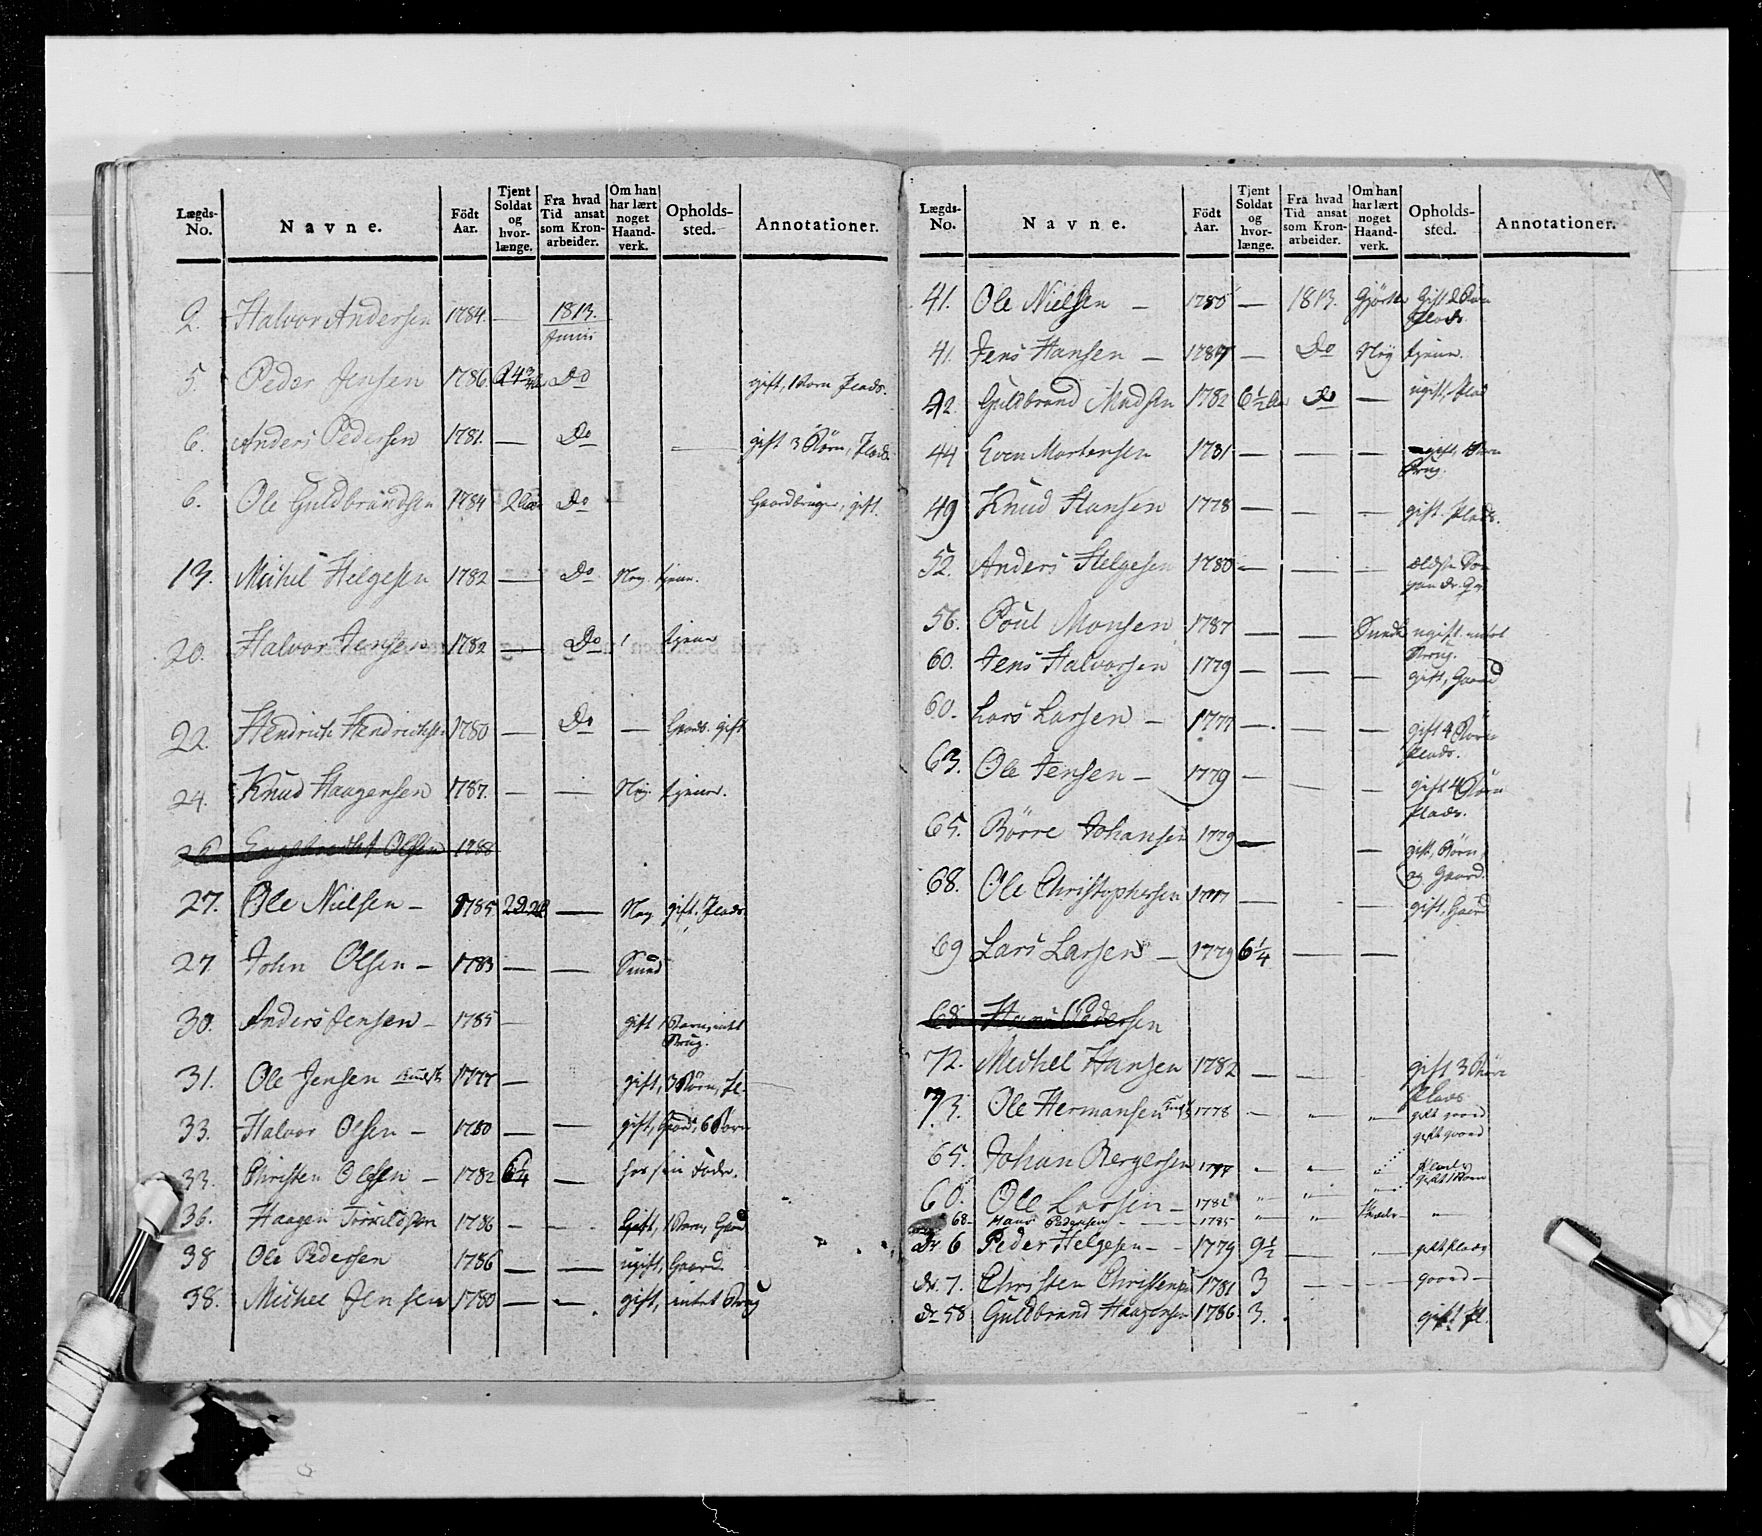 Lægds-No. Navne. Födt Aar. Tjent Soldat og hvor-længe. Fra hvad Tid ansat som Kron-arbeider. Om han har lært noget Haand-verk. Opholds-sted. Annotationer.
2. Halvor Andersen 1784. — 1813. Junii
5. Peder Jensen 1786. Do gift, 1 Barn Plads.
6. Anders Pedersen 1781. — Do — gift 3 Börn, Plads.
6. Ole Guldbrandsen 1784 Do Gaardbruger, gift.
13. Michel Helgesen 1782 — Do Ney. tjener.
20. Halvor Jensen 1782 — Do tjener
22. Hendrich Hendrichsen 1780 — Do — Gaard. gift
24. Knud Haagensen 1787. — — Nej. tjener.
26 Engebrecht Olsen 1788
27. Ole Nielsen — 1785 — Ney gift. Plads.
27. John Olsen — 1783 — — Smed
30. Anders Jensen — 1785 — gift 1 Barn, intet Brug.
31. Ole Jensen 1777 — gift, 3 Börn, Pl-
33. Halvor Olsen — 1780 — — gift, Gaard, 6 Börn
33. Christen Olsen — 1782 6 1/4 — hos sin Fader.
36. Haagen Torvildsen 1786 — - Gift, 1 Barn, Gaard
38 Ole Pedersen 1786 — — ugift, Gaard.
38. Michel Jensen 1780 — — gift, intet Brug
Lægds-No. Navne. Födt Aar. Tjent Soldat og hvor-længe. Fra hvad Tid ansat som Kron-arbeider. Om han har lært noget Haand-verk. Opholds-sted. Annotationer.
41. Ole Nielsen — 1785 — 1813. Gjörtler Gift 2 Börn Plads.
41. Jens Hansen — 1787 — Do Nej tjener.
42. Guldbrand Madsen 1782 6 1/2 Aar Do — ugift, Plads
44 Even Mortensen 1781 — — — gift, 1 Barn Brug.
49 Knud Hansen 1778 — — — gift. Plads.
52. Anders Helgesen 1780 — — - ældste Sön
56. Poul Monsen 1787 — — Smed ugift. intet Brug.
60. Jens Halvorsen 1779 — — — gift, Gaard
60. Lars Larsen — 1777 — — — gift 4 Börn Plads.
63. Ole Jensen — 1779 — — - gift 4 Börn Plads.
65. Börre Johansen 1779 — — gift, Börn, og Gaard.
68. Ole Christophersen 1777 — — gift, Gaard
69 Lars Larsen — 1779 6 1/4 — —
68. Hans Pedersen
72. Michel Hansen 1782 — — - gift 3 Börn Plads
73. Ole Hermansen 1778 — " " gift gaard
gift gaard
65. Johan Bergersen 1777 " " " Plads
60. Ole Larsen — 1782 " " " gift 1 Barn
68 — Hans Pedersen — 1785 " " —
Dr 6 Peder Helgesen — 1779 9 1/2 — " gift plads
Dr. 7. Christen Christensen 1781 3 — — gaard —
Dr 58 Guldbrand Haagensen 1786 3. gift Pl.